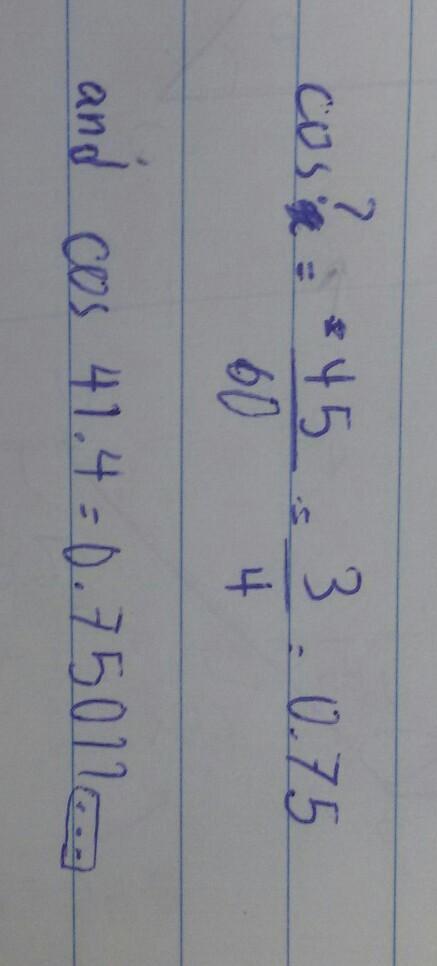 cos ? = 45/60 = 3/4 = 0.75
and cos 41.4 = 0.75011...